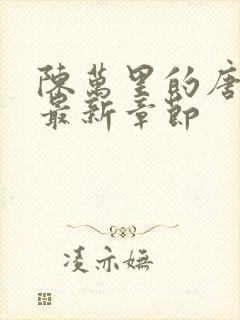 陳萬里的唐
最新章節
凌亦嫵